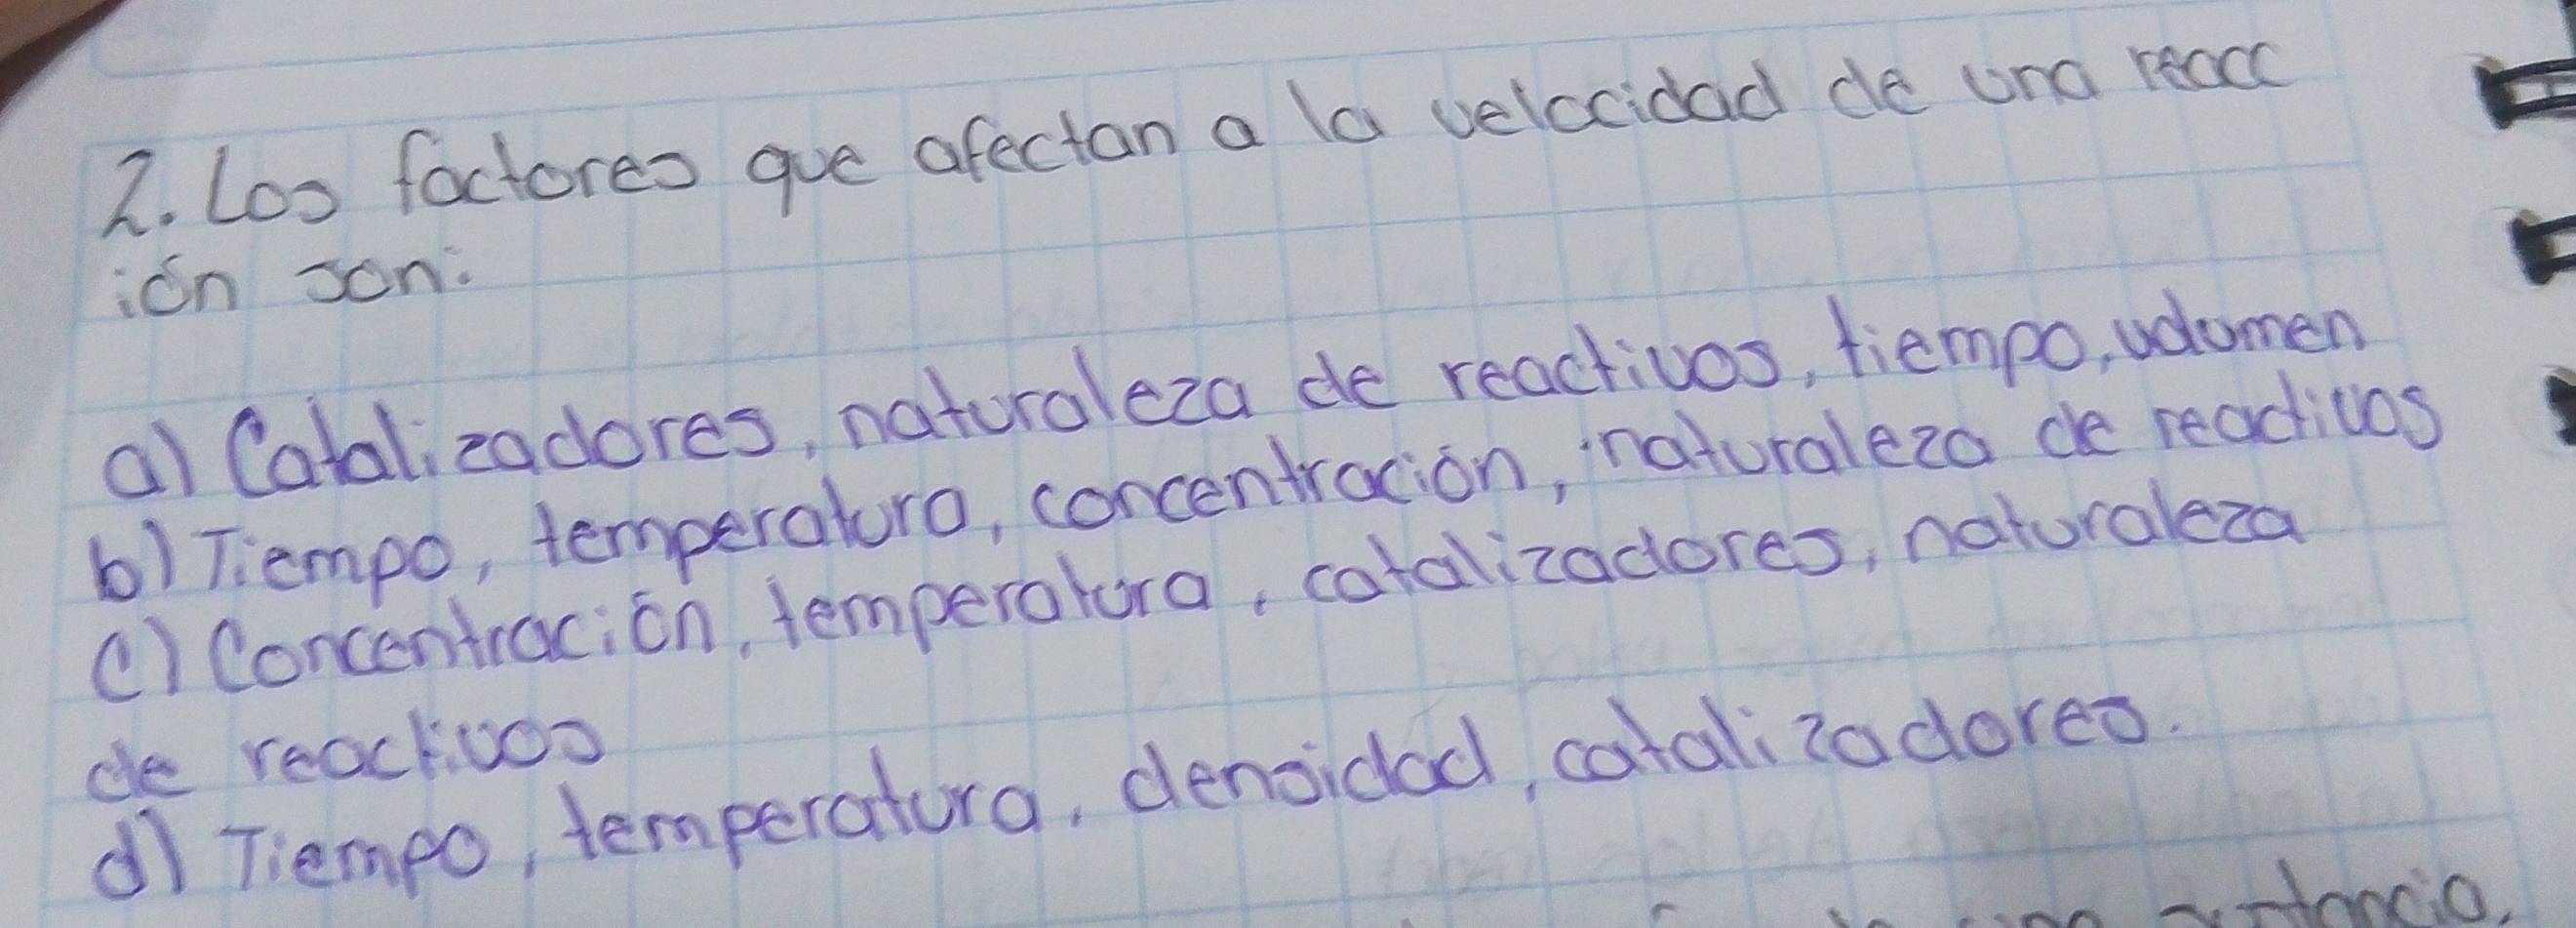 2. Los factores que afectan a la velocidad de una reacc
ión son:
a) Catalizadores, naturaleza de reactivos, tiempo, volumen
b) Tiempo, temperatura, concentración, naturaleza de reactivos
c) Concentración, temperatura, catalizadores, naturaleza
de reactivos
d) Tiempo, temperatura, densidad, catalizadores.
una sustancia,